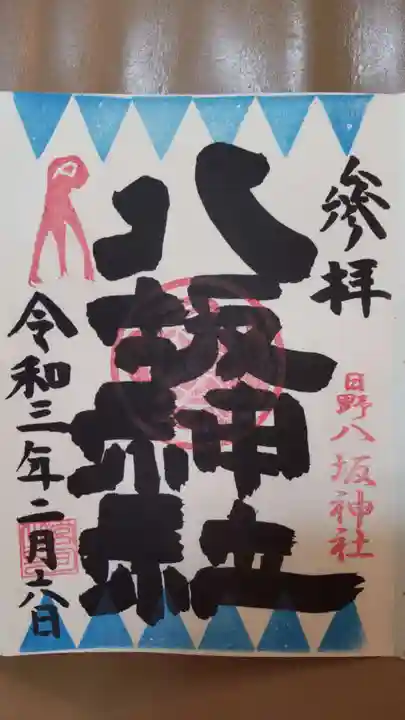 參拝
日野八坂神社
八坂神社
令和三年二月十八日